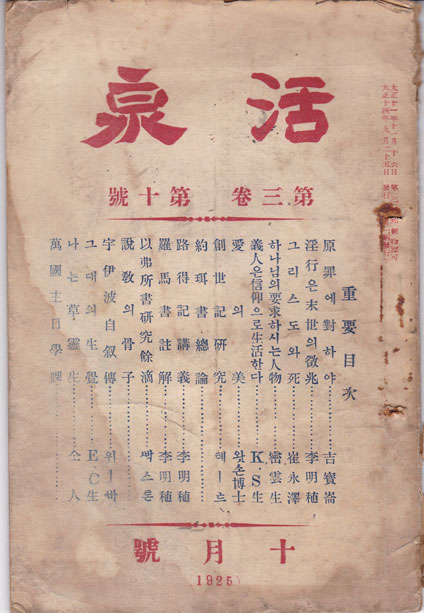 活泉
第三卷 第十號
大正十一年十一月十六日 第三種
大正十四年九月二十五日 發行
重要目次
原罪에對하야……吉寶崙
淫行은末世의徵兆……李明稙
그리스도와死……崔永澤
하나님의要求하시는人物……密雲生
義人은信仰으로生活한다……K.S生
愛의美……왓손博士
創世記研究……헤ー으
約珥書總論……
路得記講義……李明稙
羅馬書註解……李明稙
以弗所書研究餘滴……빡스톤
說敎의骨子……
宇伊波自叙傳……위ー바
그대의生覺……E.C生
나는草靈生……仝人
萬國主日學課……
十月號
(1925)